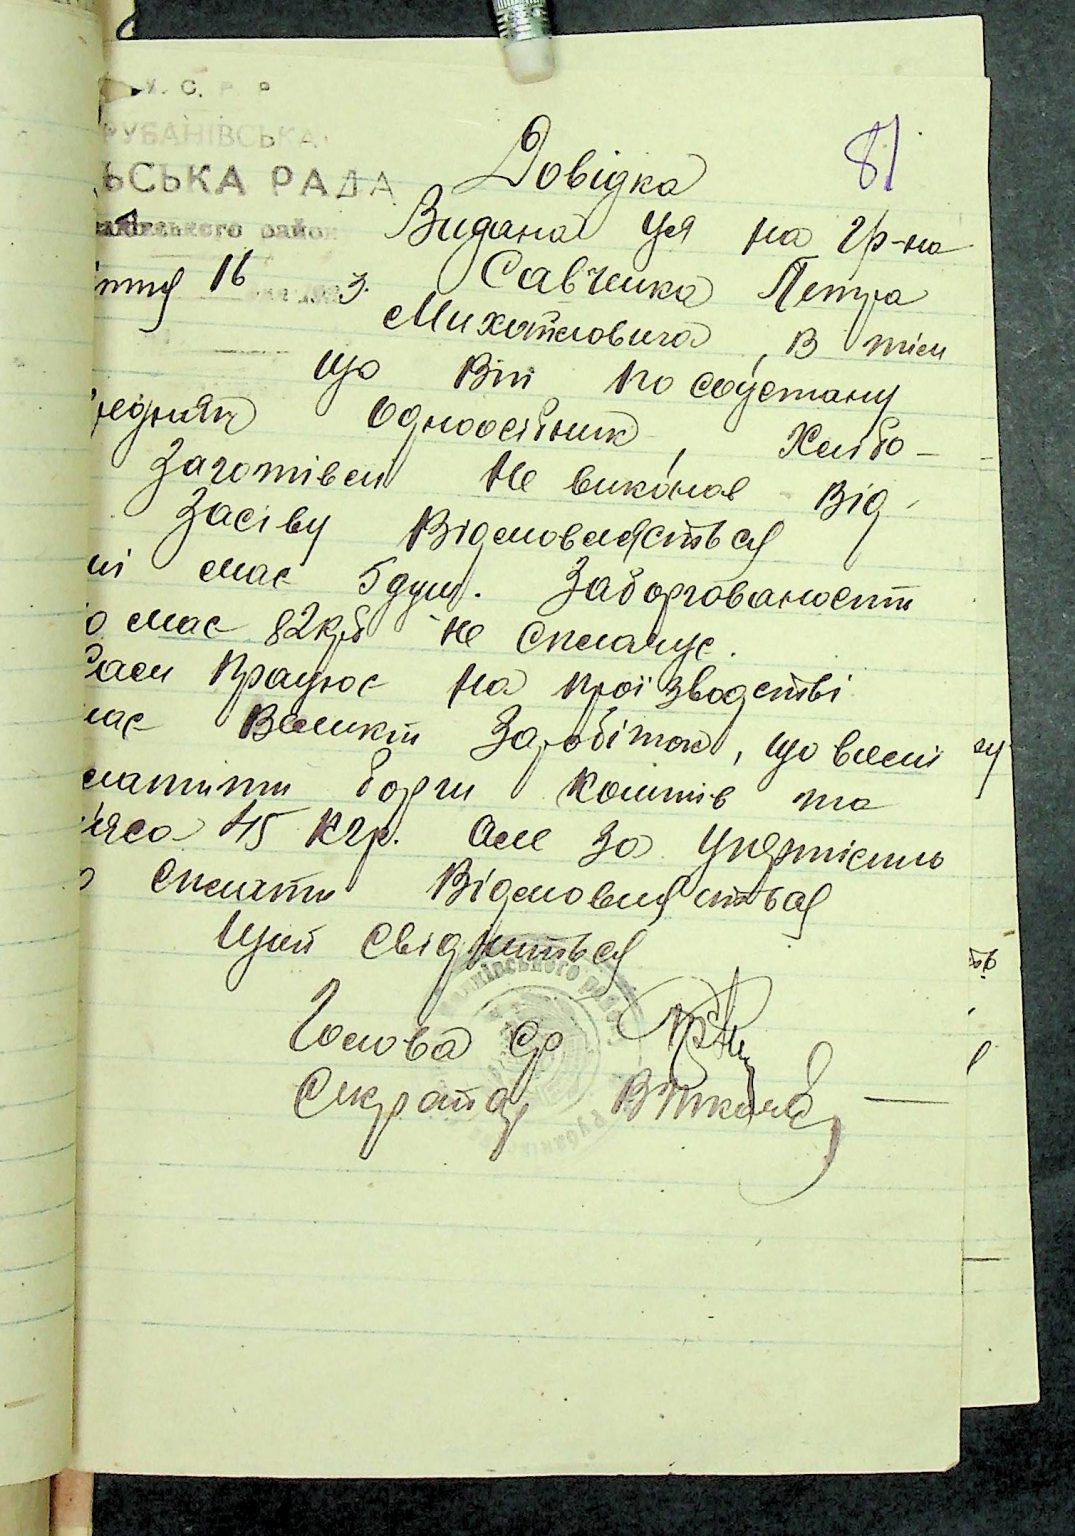 У. С. Р. Р.
РУБАНІВСЬКА
ЬСЬКА РАДА
района
16 3.
81
Довідка
Видана ця на гр-на
Савченка Петра
Михайловича, в тім
що Він по соцстану
редняк Одноосібник, Хлібо-
Заготівлі Не виконав Від-
Засіву Відмовляється
має 5 душ. Заборгованости
о має 82 крб не Сплачує.
Сам Працює На проїзводстві
має Великий Заробіток, що в силі
платити борги Коштів та
мяса 45 кгр. Але За Упертістю
Сплати Відмовляється
Цим свідчиться
Голова с/р
Секретар